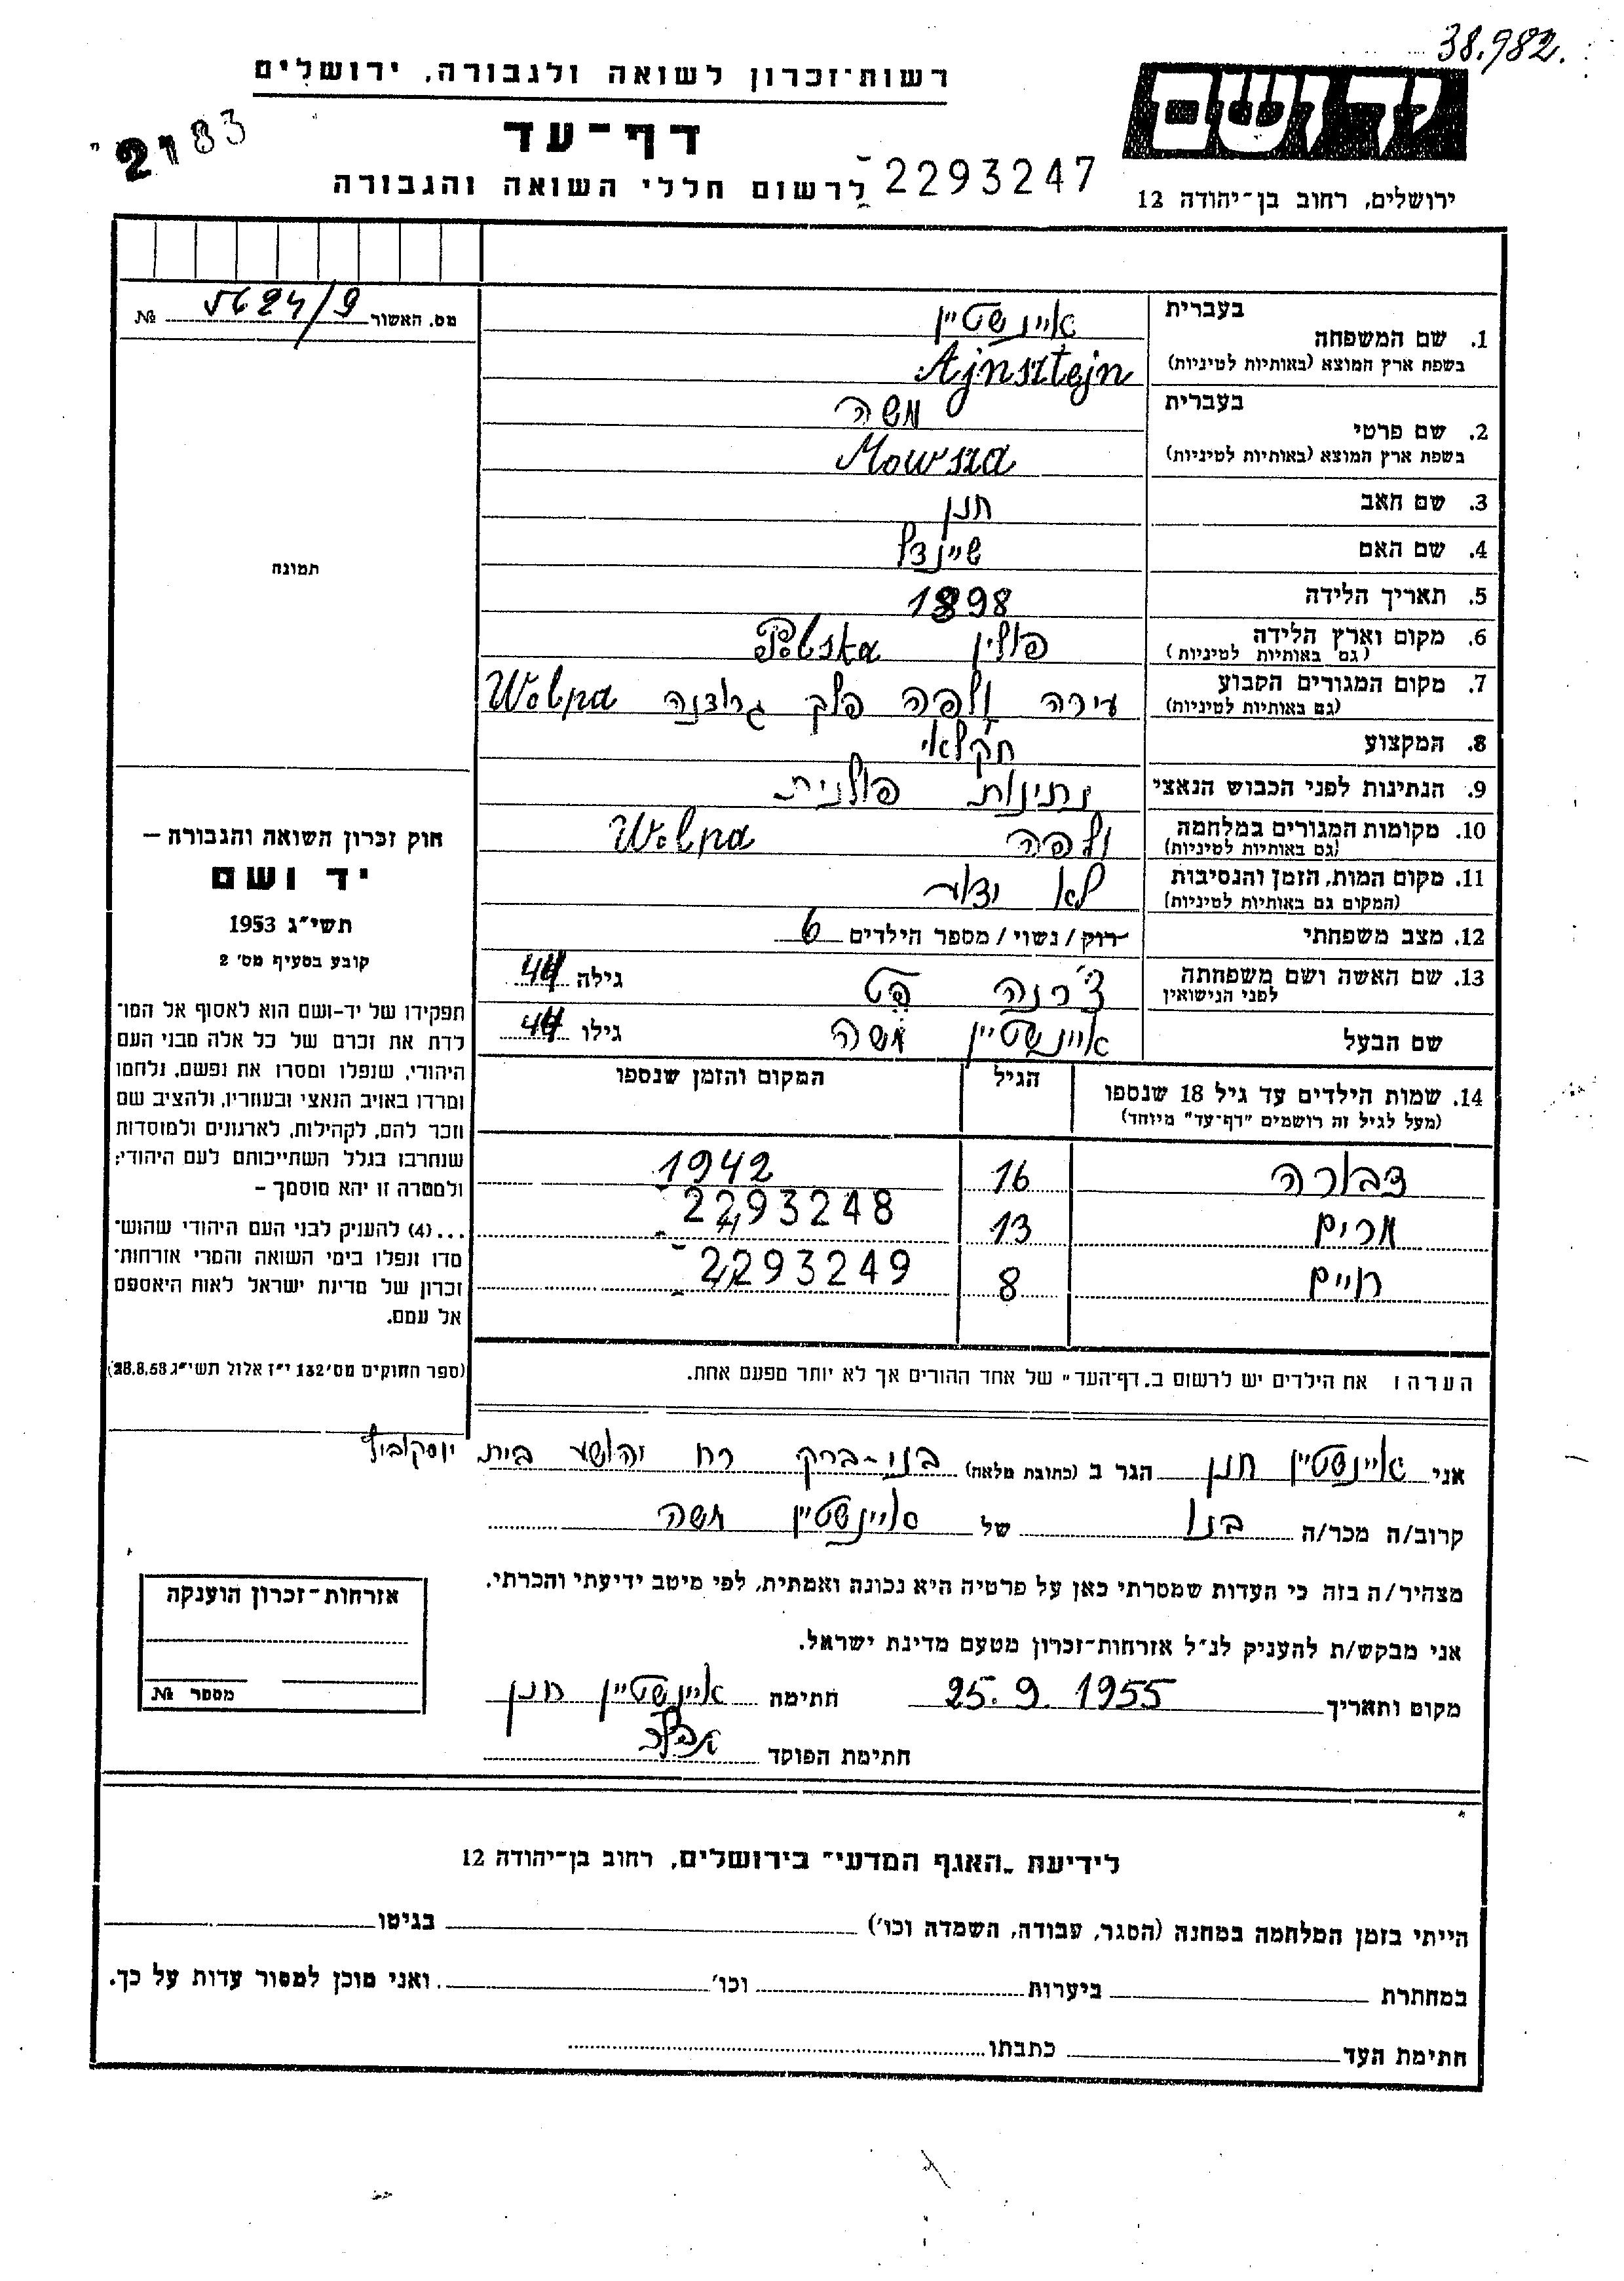 38.982.
רשות־זכרון לשואה ולגבורה, ירושלים
יד ושם
2183
דף־עד
לרשום חללי השואה והגבורה 2293247
ירושלים, רחוב בן־יהודה 12
מס. האשור 5624/9 №
תמונה
בעברית איינשטיין
1. שם המשפחה
בשפת ארץ המוצא (באותיות לטיניות) Ajnsztejn
בעברית משה
2. שם פרטי
בשפת ארץ המוצא (באותיות לטיניות) Mowsza
3. שם האב חנן
4. שם האם שיינדל
5. תאריך הלידה 1898
6. מקום וארץ הלידה פולין
(גם באותיות לטיניות)
7. מקום המגורים הקבוע עירה ולפה פלך גרודנה Wolpa
(גם באותיות לטיניות)
8. המקצוע חקלאי
9. הנתינות לפני הכבוש הנאצי נתינות פולנית
10. מקומות המגורים במלחמה ולפה Wolpa
(גם באותיות לטיניות)
11. מקום המות, הזמן והנסיבות לא ידוע
(המקום גם באותיות לטיניות)
12. מצב משפחתי רוק/נשוי/מספר הילדים 6
13. שם האשה ושם משפחתה גילה 44
לפני הנישואין
שם הבעל איינשטיין משה גילו 44
14. שמות הילדים עד גיל 18 שנספו הגיל המקום והזמן שנספו
(מעל לגיל זה רושמים "דף־עד" מיוחד)
דבורה 16 1942
2293248
מרים 13
2293249
חיים 8
הערה: את הילדים יש לרשום ב„דף־העד" של אחד ההורים אך לא יותר מפעם אחת.
חוק זכרון השואה והגבורה –
יד ושם
תשי"ג 1953
קובע בסעיף מס' 2
תפקידו של יד-ושם הוא לאסוף אל המו־
לדת את זכרם של כל אלה מבני העם
היהודי, שנפלו ומסרו את נפשם, נלחמו
ומרדו באויב הנאצי ובעוזריו, ולהציב שם
וזכר להם, לקהילות, לארגונים ולמוסדות
שנחרבו בגלל השתייכותם לעם היהודי;
ולמטרה זו יהא מוסמך –
...(4) להעניק לבני העם היהודי שהוש־
מדו ונפלו בימי השואה והמרי אזרחות־
זכרון של מדינת ישראל לאות היאספם
אל עמם.
(ספר החוקים מס' 132 י"ז אלול תשי"ג 28.8.53)
אני איינשטיין חנן הגר ב (כתובת מלאה) בני-ברק רח יהושע בית יוסקוביץ
קרוב/ה מכר/ה בנו של איינשטיין משה
מצהיר/ה בזה כי העדות שמסרתי כאן על פרטיה היא נכונה ואמתית, לפי מיטב ידיעתי והכרתי.
אני מבקש/ת להעניק לנ"ל אזרחות־זכרון מטעם מדינת ישראל.
מקום ותאריך 25.9.1955 חתימה איינשטיין חנן
חתימת הפוקד
אזרחות־זכרון הוענקה
מספר №
לידיעת „האגף המדעי" בירושלים, רחוב בן־יהודה 12
הייתי בזמן המלחמה במחנה (הסגר, עבודה, השמדה וכו') בגיטו
במחתרת ביערות וכו' ואני מוכן למסור עדות על כך.
חתימת העד כתבתו